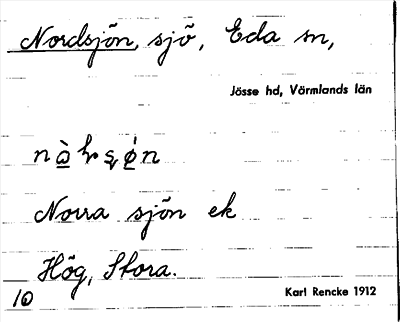 Nordsjön, sjö, Eda sn,
Jösse hd, Värmlands län
Norra sjön ek
Hög, Stora.
10
Karl Rencke 1912